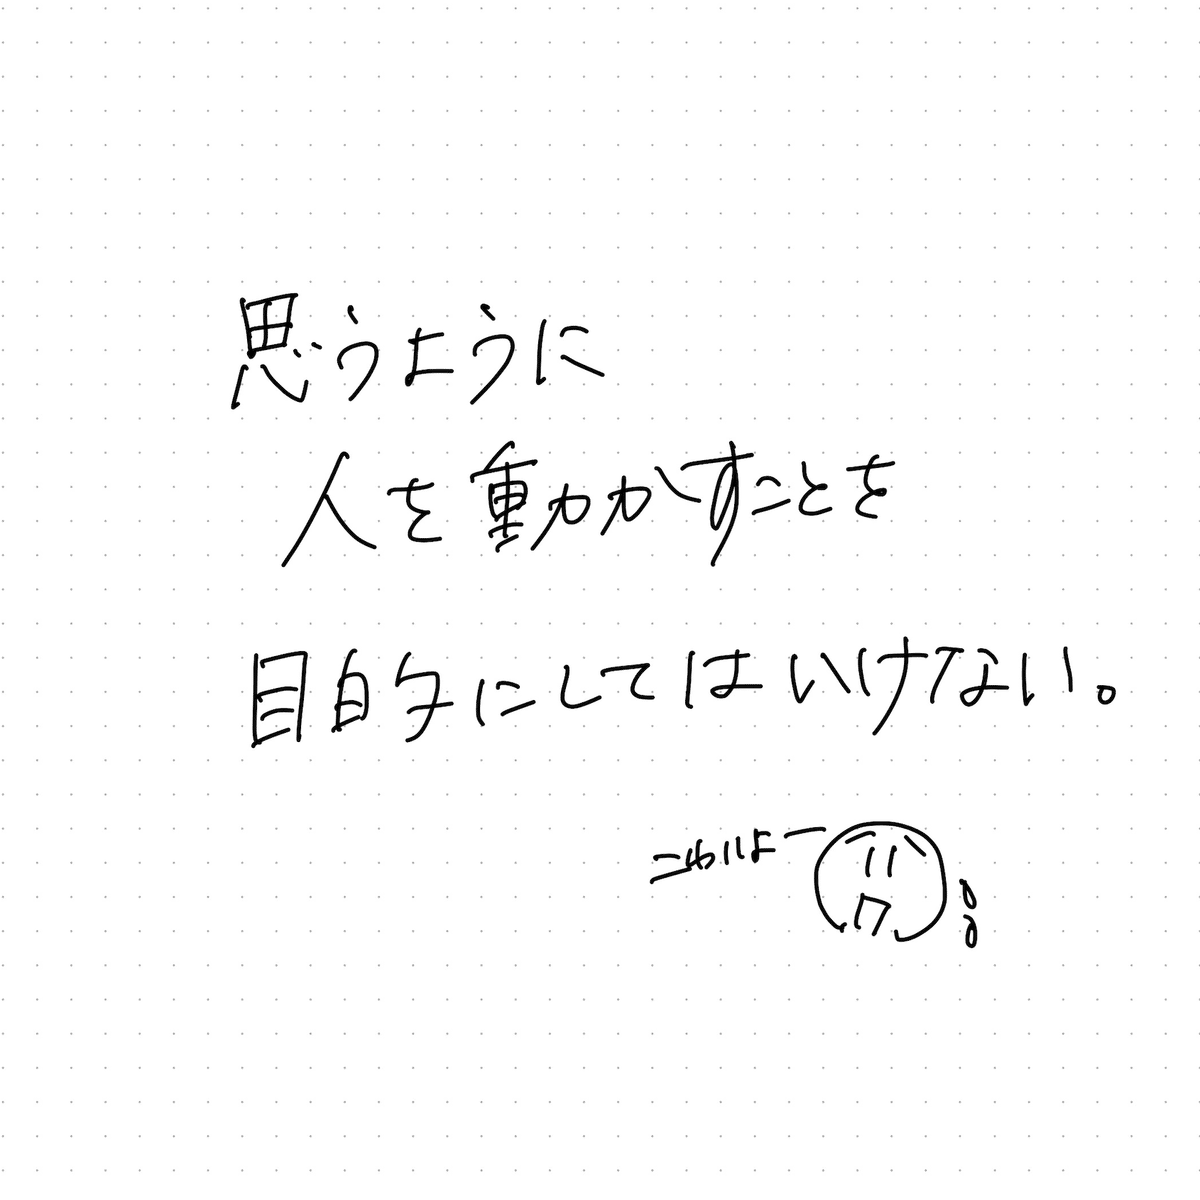 思うように
人を動かすことを
目的にしてはいけない。
こわいよー